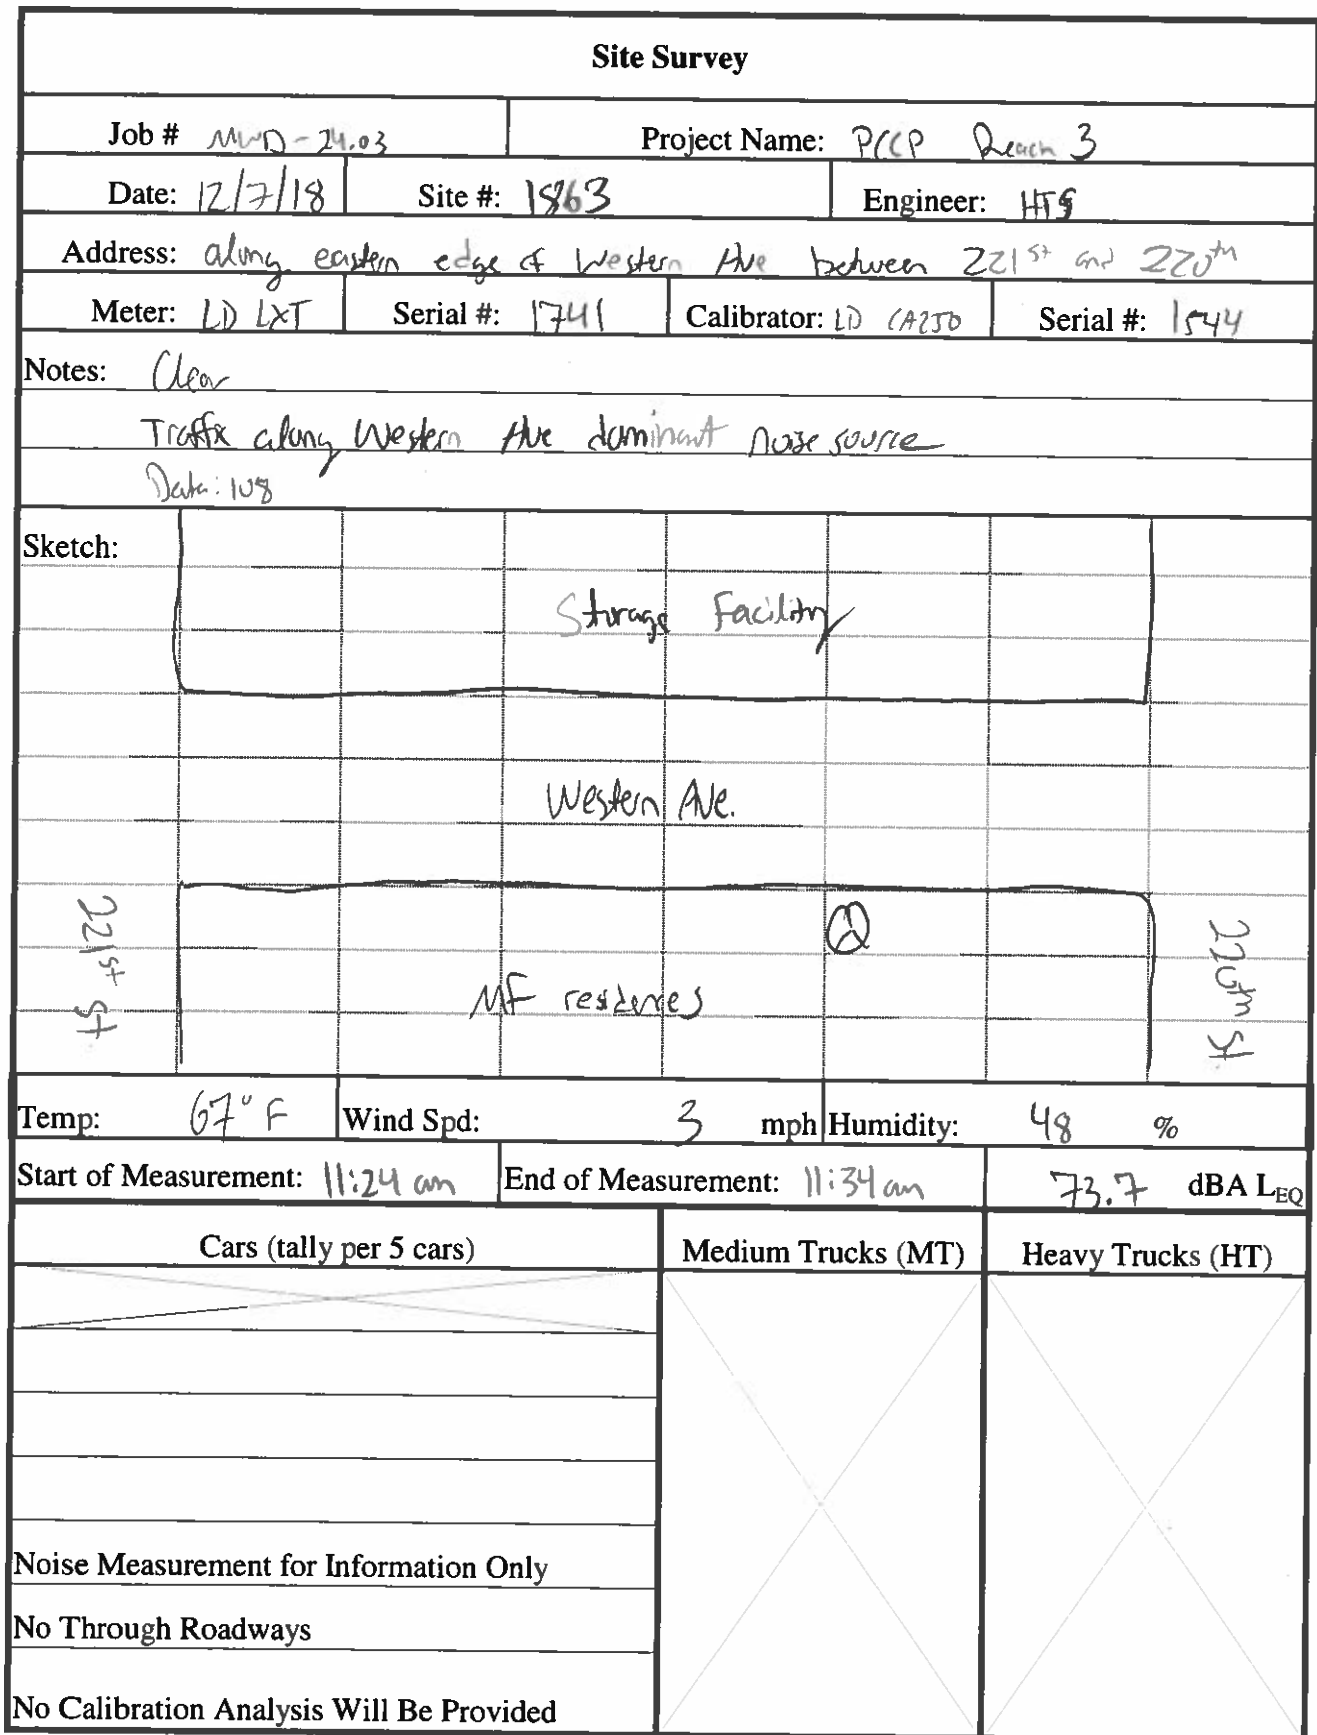 Site Survey
Job # MWD-24.03 Project Name: PCCP Reach 3
Date: 12/7/18 Site #: 1863 Engineer:
Address: along eastern edge of Western Ave between 221st and 220th
Meter: LD LXT Serial #: 1741 Calibrator: LD CA250 Serial #: 1544
Notes: Clear
Traffic along Western Ave dominant noise source
Data: 108
Sketch:
Storage Facility
Western Ave.
221st St
220th St.
MF residences
Temp: 67° F Wind Spd: 3 mph Humidity: 48 %
Start of Measurement: 11:24 am End of Measurement: 11:34 am 73.7 dBA LEQ
Cars (tally per 5 cars) Medium Trucks (MT) Heavy Trucks (HT)
Noise Measurement for Information Only
No Through Roadways
No Calibration Analysis Will Be Provided